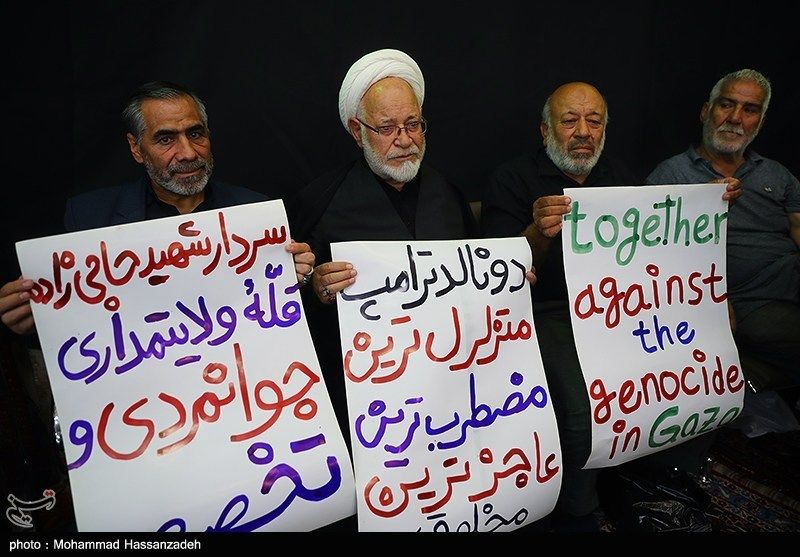 سردار شهید حاجی زاده
قلّهٔ ولایتمداری
جوانمردی و
تخصص
دونالد ترامپ
متزلزل ترین
مضطرب ترین
عاجز ترین
مخلوق
together
against
the
genocide
in Gaza
تسنیم
photo : Mohammad Hassanzadeh